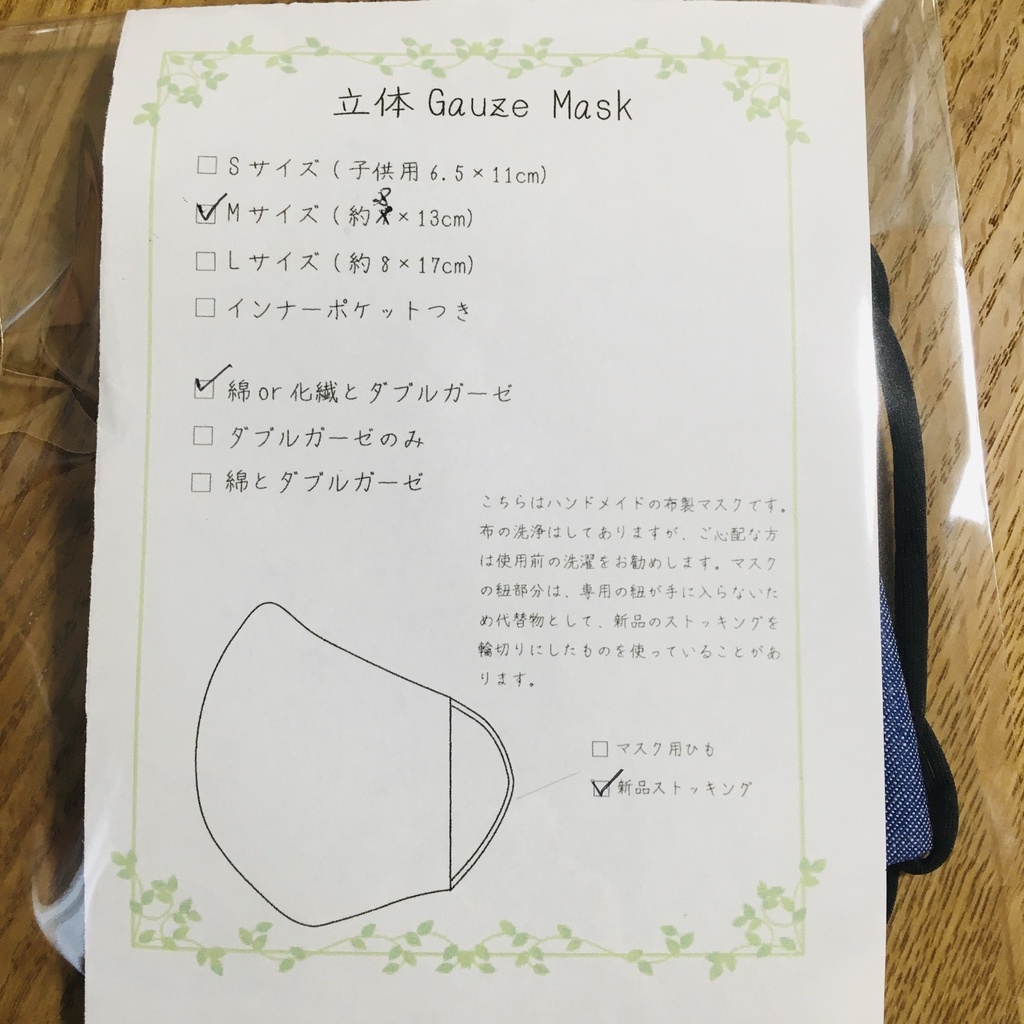 立体 Gauze Mask
□ Sサイズ (子供用 6.5×11cm)
☑ Mサイズ (約8×13cm)
□ Lサイズ (約8×17cm)
□ インナーポケットつき
☑ 綿or化繊とダブルガーゼ
□ ダブルガーゼのみ
□ 綿とダブルガーゼ
こちらはハンドメイドの布製マスクです。
布の洗浄はしてありますが、ご心配な方
は使用前の洗濯をお勧めします。マスク
の紐部分は、専用の紐が手に入らないた
め代替物として、新品のストッキングを
輪切りにしたものを使っていることがあ
ります。
□ マスク用ひも
☑ 新品ストッキング